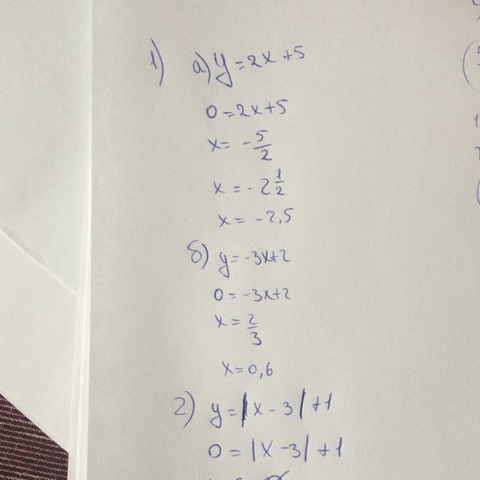 1) а) y=2x+5
0=2x+5
x= -5/2
x = -2 1/2
x = -2,5
б) y=-3x+2
0=-3x+2
x = 2/3
x=0,6
2) y=|x-3|+1
0=|x-3|+1